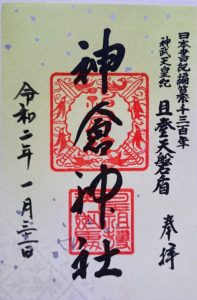 日本書紀編纂千三百年
神武天皇紀
且登天磐盾
奉拝
神倉神社
令和二年 一月